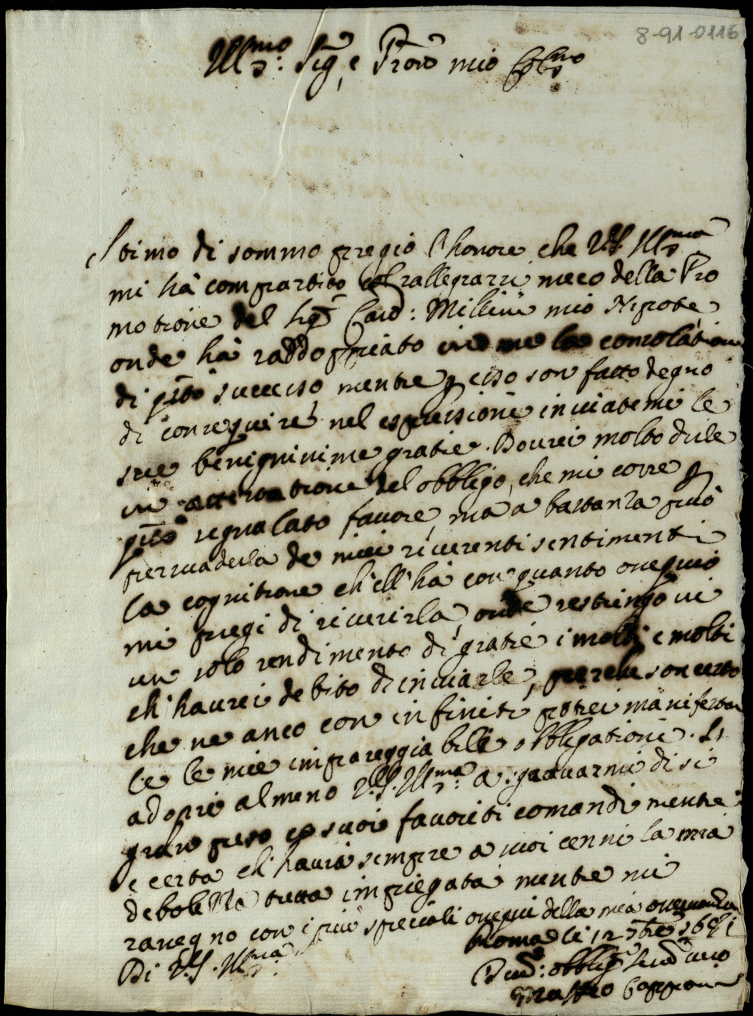 8-91-0116
Ill.mo Sig.r e Pron mio Coll.mo
Stimo di sommo pregio l'honore che V.S. Ill.ma
mi hà compartito col rallegrarsi meco della Pro
motione del Sig.r Card: Millini mio Nipote
onde hà raddoppiato in me la consolatione
di q.sto successo mentre p esso son fatto degno
di conseguire nel espressione inviatemi le
sue benignissime gratie. Dovrei molto dirle
in attestatione del obbligo, che mi corre p
q.sto segnalato favore, ma a bastanza può
persuaderla de miei riverenti sentimenti
la cognitione ch'ell'hà con quanto ossequio
mi pregi di riverirla onde restringo in
un solo rendimento di gratie i molti e molti
ch'haurei debito di inviarle, perche son certo
che ne anco con infiniti potrei manifestar
le le mie impareggiabili obbligationi. Si
adopri almeno V.S. Ill.ma a sgravarmi di si
gran peso co suoi favoriti comandi mentre
è certa ch'haurà sempre a suoi cenni la mia
debolezza tutta impiegata mentre mi
rasegno con i più speciali ossequi della mia osservanza
Di V.S. Ill.ma
Roma li 12 7bre 1681
obblig